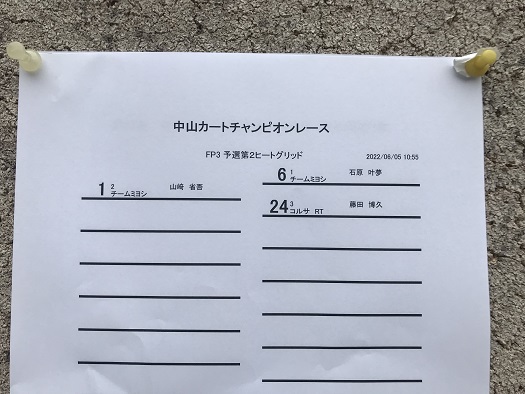 中山カートチャンピオンレース
FP3 予選第2ヒートグリッド
2022/06/05 10:55
6 1 石原 叶夢
チームミヨシ
1 2 山崎 省吾
チームミヨシ
24 3 藤田 博久
コルサ RT